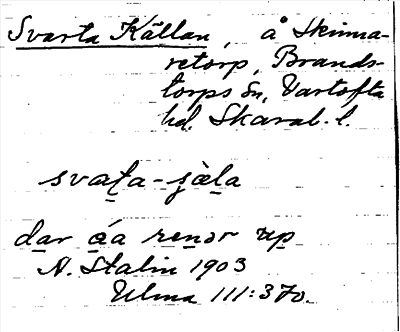 Svarta Källan, å Skinna-
retorp, Brands-
torps sn, Vartofta
hd. Skarab. l.
svaṯa-s̱äḻa
ḏar a̱a renər up̱
N. Stalin 1903
Ulma 111:370.